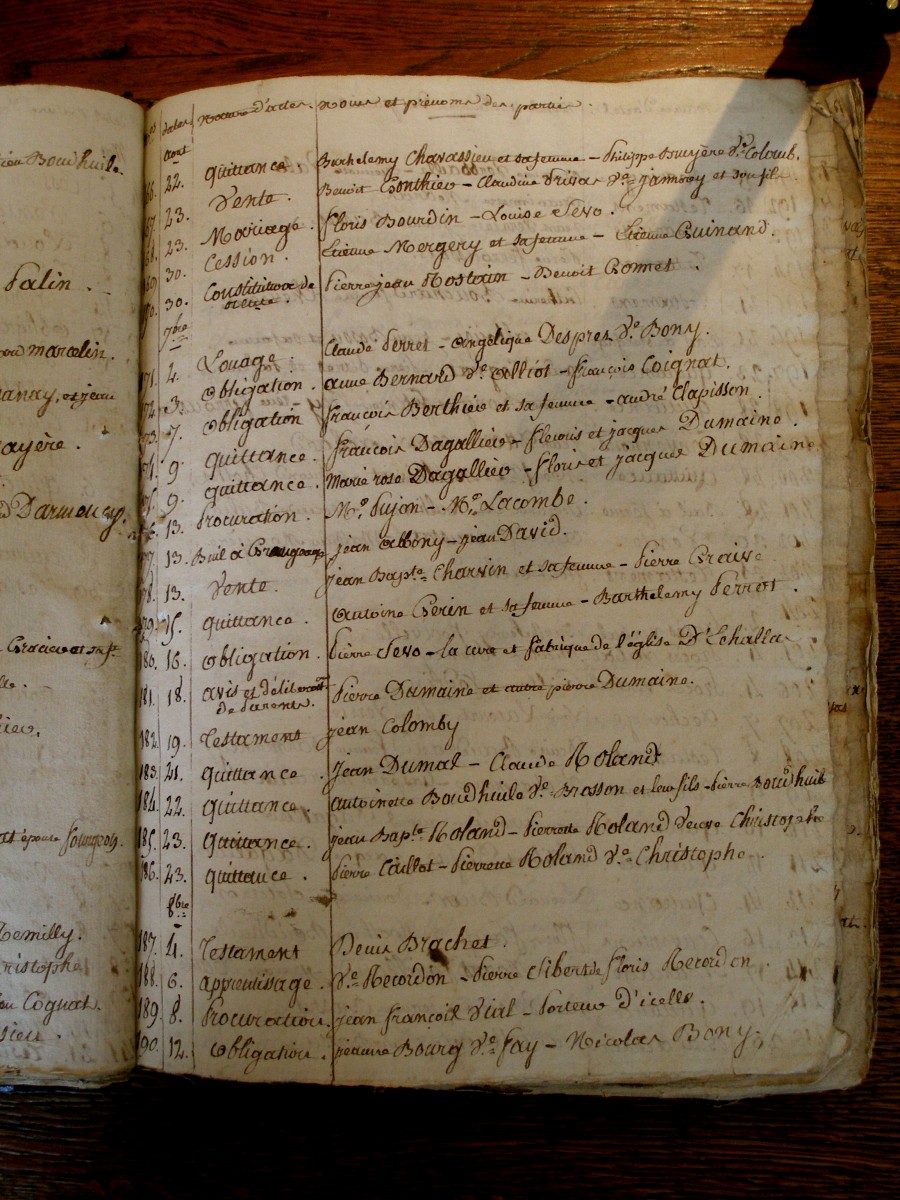 Boudhuile.
Palin.
marcelin.
et jean
ayère.
Darmoncy.
épouse fourgeois.
Remilly.
christophe
Cognat.
dates Nature d'actes. Noms et prénoms des parties.
Aout
166. 22. Quittance. Barthelemy Chavassieu et sa femme – Philippe Bruyère Ve. Colomb.
167. 23. Vente. Benoit Gonthier – Claudine Ve. jamboy et son fils
168. 23. Mariage. floris Bourdin – Louise Sevo.
169. 30. Cession. Etienne Mergery et sa femme – Etienne Guinand.
170. 30. Constitution de Pierre jean Rostain – Benoit Gonnet.
7bre
171. 2. Louage. Claude Perret – Angelique Despres Ve. Bony.
172. 3. Obligation. anne Bernard Ve. Alliot – françois Coignat.
173. 7. Obligation françois Berthière et sa femme – andré Clapisson.
174. 9. Quittance. françois Dagallier – fleuris et jacques Dumaine.
175. 9. Quittance. Marie rose Dagallier – floris et jacques Dumaine
176. 13. Procuration. Me. Pujon – Me. Lacombe.
177. 13. Bail à jean Albony – jean David.
178. 13. Vente. jean Bapte. Charvin et sa femme – Pierre
179. 15. Quittance. Antoine Gerin et sa femme – Barthelemy Perrot.
180. 16. Obligation. Pierre Sevo – la cure et fabrique de l'église D'Echallas
181. 18. avis et délibération Pierre Dumaine et autre pierre Dumaine.
de Parents.
182. 19. Testament jean Colomby
183. 21. Quittance. jean Dumas – Claude Roland
184. 22. Quittance. Antoinette Boudhuile Ve. Brosson et leur fils – Pierre Boudhuile
185. 23. Quittance. jean Bapte. Roland – Pierrette Roland Veuve Christophe
186. 23. Quittance. Pierre Caillot – Pierrette Roland Ve. Christophe.
8bre
187. 4. Testament Denis Brachet.
188. 6. Apprentissage. Ve. Recordon – Pierre Clibert de floris Recordon.
189. 8. Procuration. jean françois Vial – Porteur D'icelle.
190. 12. Obligation. jeanne Bourg Ve. fay – Nicolas Bony.